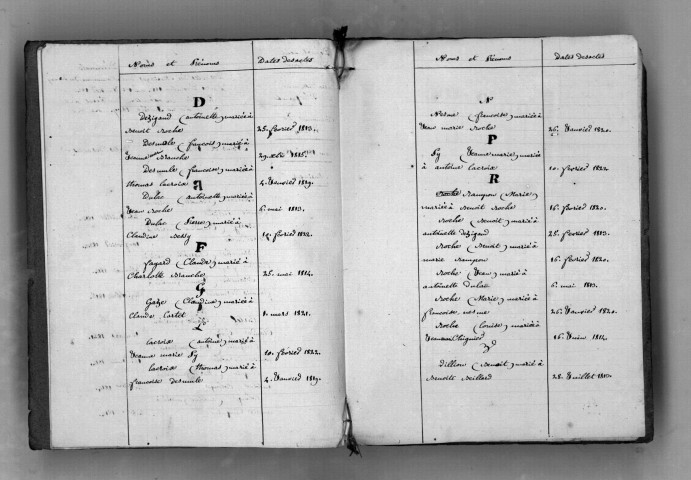 Noms et Prénoms Dates des actes
D
Dézigaud (antoinette) mariée à
Benoit Roche 25. fevrier 1813.
Desmule (françois) marié à
Jeanne Branche
Desmule (francoise) mariée à
thomas lacroix 4. Janvier 1819.
Dulac (antoinette) mariée à
Jean Roche 6. mai 1813.
Dulac (Pierre) marié à
Claudine Bessy 14. fevrier 1822.
F
fayard (Claude) marié à
Charlotte Branche 25. mai 1814.
G
Gaze (Claudine) mariée à
Claude Cortet 1. mars 1821.
L
lacroix (antoine) marié à
Jeanne marie Py 10. fevrier 1822.
lacroix (thomas) marié à
francoise desmule 4. Janvier 1819.
Noms et Prénoms Dates des actes
N
Nesme (francoise) mariée à
Jean marie Roche 26. Janvier 1820.
P
Py (Jeanne marie) mariée
à antoine lacroix 10. fevrier 1822.
R
Rampon (Marie)
mariée à Benoit Roche 16. fevrier 1820.
Roche (Benoit) marié à
antoinette dézigaud 25. fevrier 1813.
Roche (Benoit) marié à
marie Rampon 16. fevrier 1820.
Roche (Jean) marié à
antoinette dulac 6. mai 1813.
Roche (Marie) mariée à
francoise nesme 26. Janvier 1820.
Roche (louise) mariée à
16. Juin 1814.
(Benoit) marié à
Benoite 28. Juillet 1813.